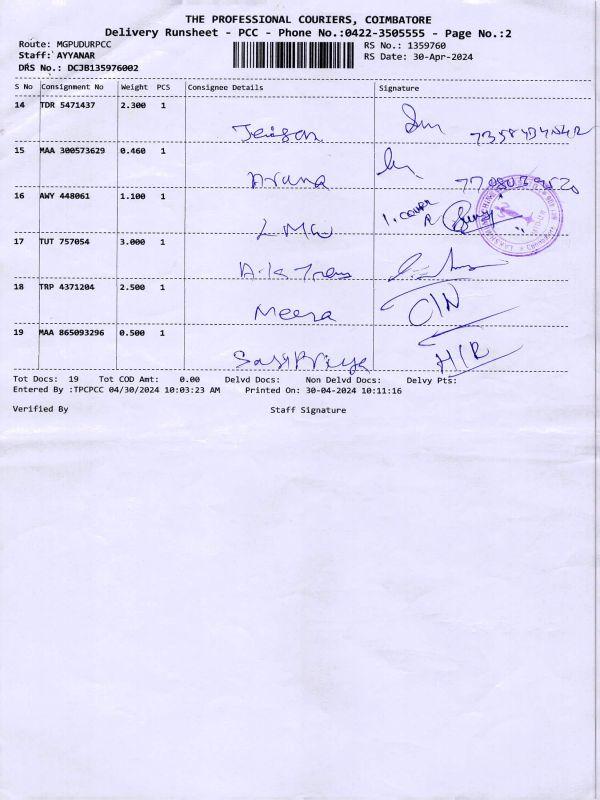 THE PROFESSIONAL COURIERS, COIMBATORE
Delivery Runsheet - PCC - Phone No.:0422-3505555 - Page No.:2
Route: MGPUDURPCC RS No.: 1359760
Staff: AYYANAR RS Date: 30-Apr-2024
DRS No.: DCJB135976002
S No Consignment No Weight PCS Consignee Details Signature
14 TDR 5471437 2.300 1
Jeison
15 MAA 300573629 0.460 1
Aruna
16 AWY 448061 1.100 1
LMW 1. cover
17 TUT 757054 3.000 1
18 TRP 4371204 2.500 1
Meera C/N
19 MAA 865093296 0.500 1
Sasi Priya H/R
Tot Docs: 19 Tot COD Amt: 0.00 Delvd Docs: Non Delvd Docs: Delvy Pts:
Entered By :TPCPCC 04/30/2024 10:03:23 AM Printed On: 30-04-2024 10:11:16
Verified By Staff Signature